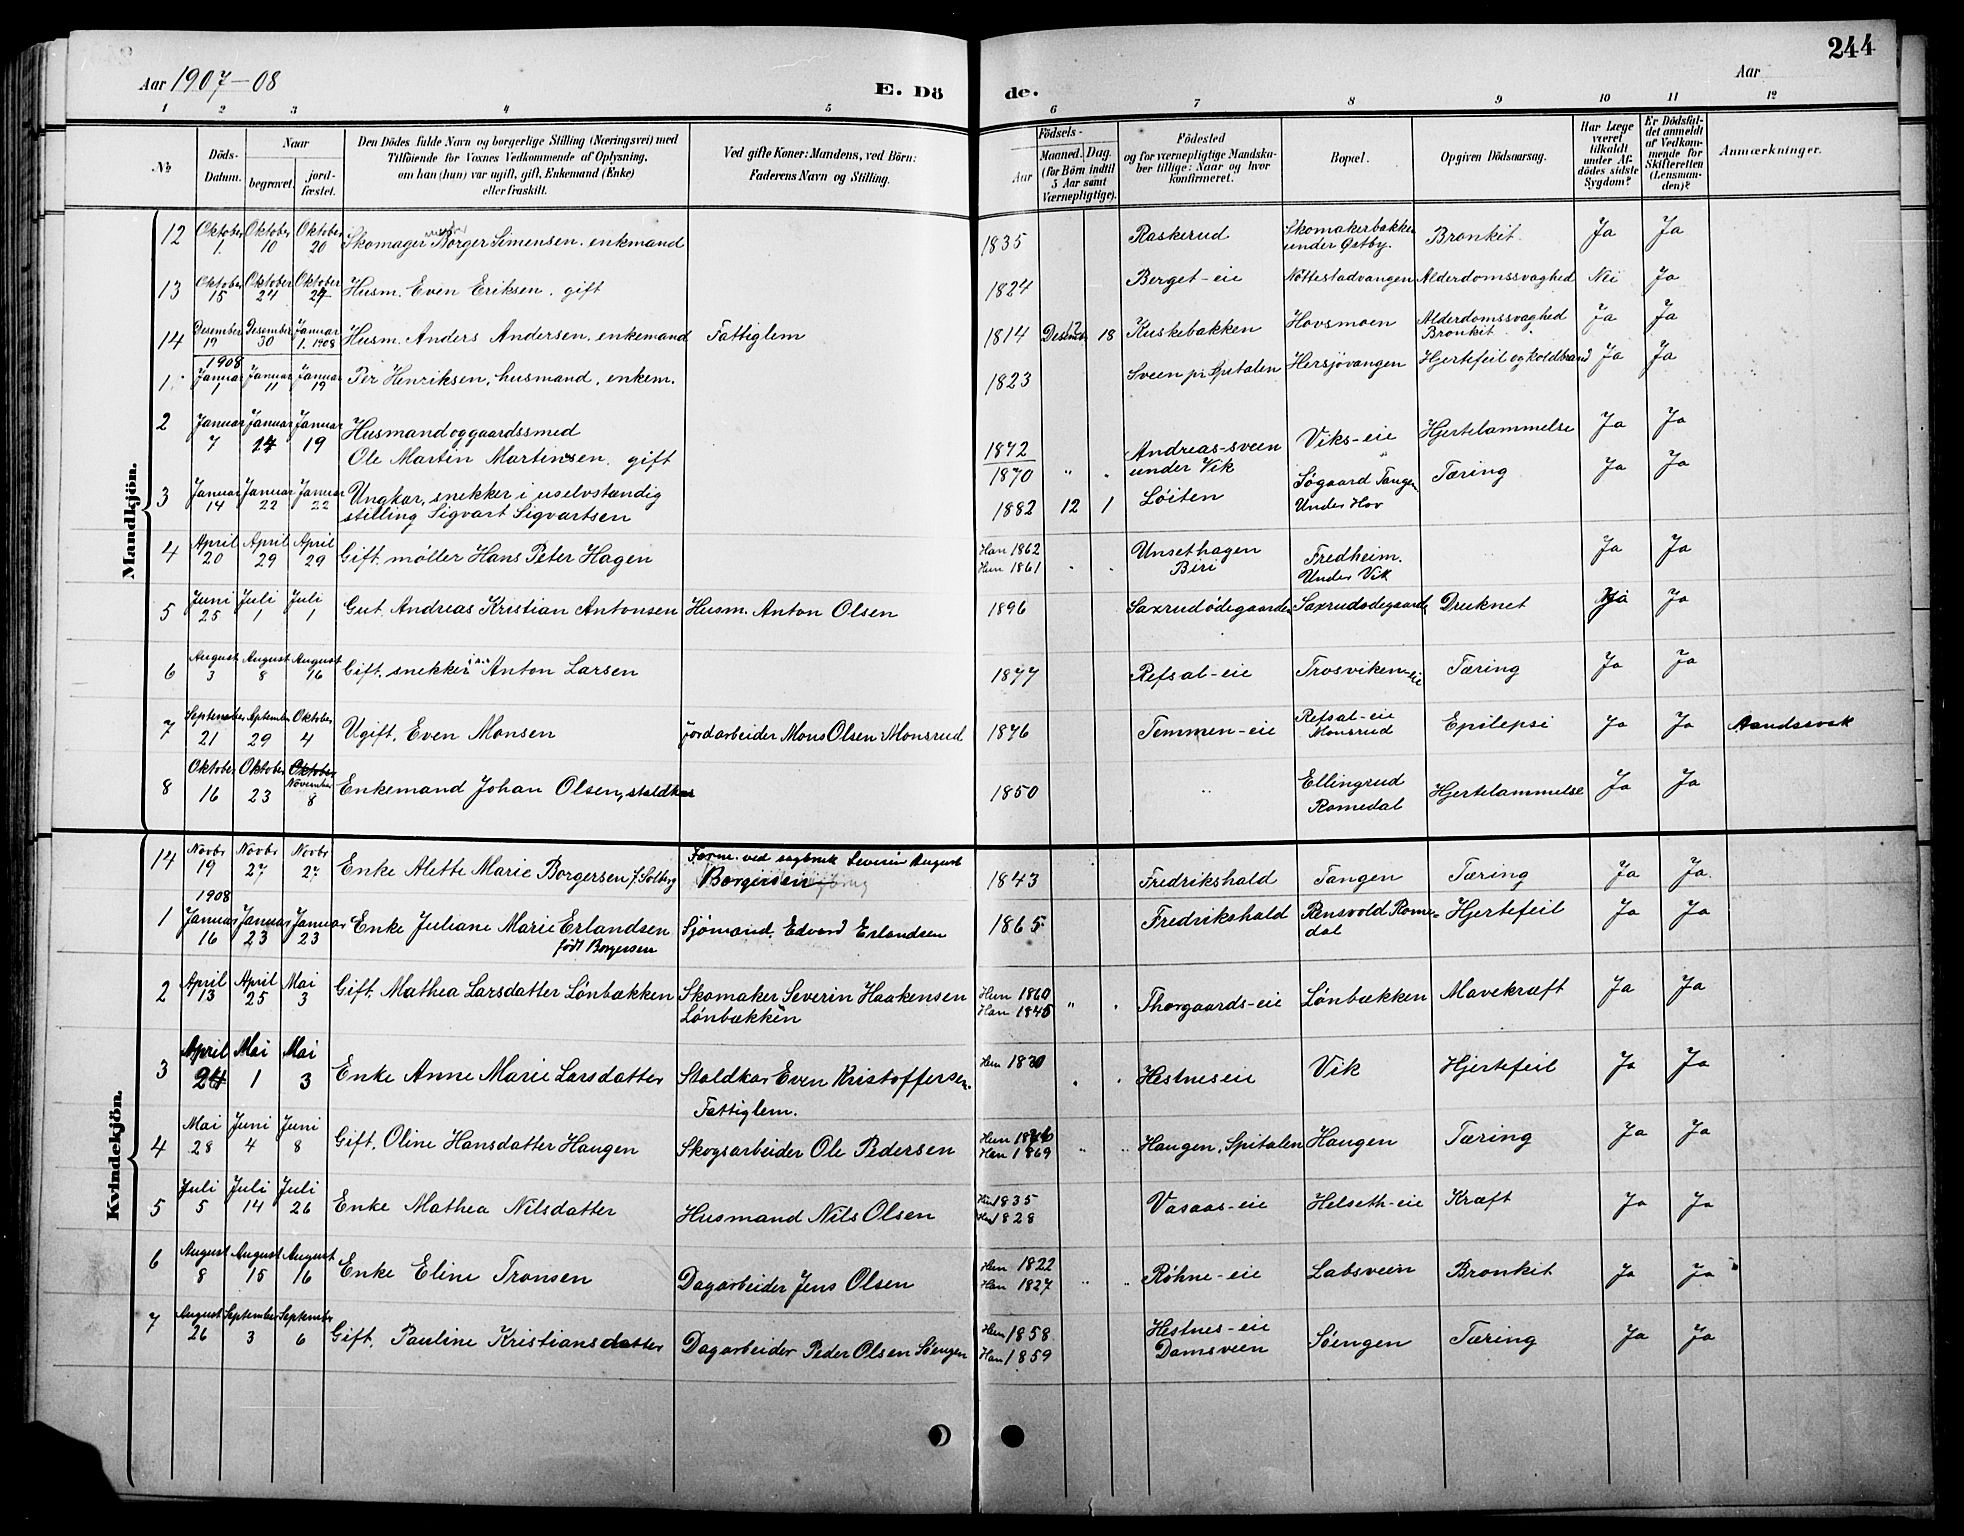 244
Aar 1907-08
E. Dö
de.
Aar
1 2 3 4 5 6 7 8 9 10 11 12
No
Döds-Datum.
Naar
begravet.
jord-fæstet.
Den Dödes fulde Navn og borgerlige Stilling (Næringsvei) med
Tilföiende for Voxnes Vedkommende af Oplysning,
om han (hun) var ugift, gift, Enkemand (Enke)
eller fraskilt.
Ved gifte Koner: Mandens, ved Börn:
Faderens Navn og Stilling.
Födsels-
Aar
Maaned. Dag.
(for Börn indtil
5 Aar samt
Værnepligtige).
Födested
og for værnepligtige Mandska-
ber tillige: Naar og hvor
konfirmeret.
Bopæl.
Opgiven Dödsaarsag.
Har Læge
været
tilkaldt
under Af-
dödes sidste
Sygdom?
Er Dödsfal-
det anmeldt
af Vedkom-
mende for
Skifteretten
(Lensman-
den)?
Anmærkninger.
Mandkjön.
12 Oktober 1. Oktober 10 Oktober 20 Skomager Borger Simensen. enkmand 1835 Raskerud Skomakerbakken under Østby. Bronkit. Ja Ja
13 Oktober 15 Oktober 24 Oktober 27 Husm. Even Eriksen. gift 1824 Berget-eie Nøttestadvangen Alderdomssvaghed Nei Ja
14 Desember 19 Desember 30 Januar 1. 1908 Husm. Anders Andersen, enkemand Fattiglem 1814 Desember 12 18 Kuskebakken Hovsmoen Alderdomssvaghed Bronkit Ja Ja
1908
1 Januar 1 Januar 11 Januar 19 Per Henriksen, husmand, enkem. 1823 Sveen pr Spitalen Hersjøvangen Hjertefeil og koldbrand Ja Ja
2 Januar 7 Januar 14 Januar 19 Husmand og gaardssmed
Ole Martin Martinsen. gift 1872 1870 " " Andreas-sveen under Vik Viks-eie Hjertelammelse Ja Ja
3 Januar 14 Januar 22 Januar 22 Ungkar, snekker i uselvstændig
stilling Sigvart Sigvartsen 1882 12 1 Løiten Søgaard Tangen Under Hov Tæring Ja Ja
4 April 20 April 29 April 29 Gift. møller Hans Peter Hagen Han 1862 Hun 1861 " " Unsethagen Biri Fredheim. Under Vik Ja Ja
5 Juni 25 Juli 1 Juli 1 Gut. Andreas Kristian Antonsen Husm. Anton Olsen 1896 Saxrudødegaarden Saxrudødegaarden Druknet Ja Ja
6 August 3 August 8 August 16 Gift, snekker Anton Larsen 1877 Refsal-eie Trosviken-eie Tæring Ja Ja
7 September 21 September 29 Oktober 4 Ugift. Even Monsen jordarbeider Mons Olsen Monsrud 1876 Temmen-eie Refsal-eie Monsrud Epilepsi Ja Ja Aandssvak
8 Oktober 16 Oktober 23 Oktober November 8 Enkemand Johan Olsen, staldkar 1850 " Ellingrud Romedal Hjertelammelse Ja Ja
Kvindekjön.
14 Novbr 19 Novbr 27 Novbr 27 Enke Alette Marie Borgersen f. Solberg Form. ved sagbruk Severin August
Borgersen 1843 Fredrikshald Tangen Tæring Ja Ja.
1908
1 Januar 16 Januar 23 Januar 23 Enke Juliane Marie Erlandsen
født Borgersen Sjømand. Edvard Erlandsen 1865 Fredrikshald Rensvold Romedal Hjertefeil Ja Ja
2 April 13 April 25 Mai 3 Gift. Mathea Larsdatter Lønbækken Skomaker Severin Haakensen
Lønbækken Hun 1860 Han 1845 " " Thorgaards-eie Lønbækken Mavekræft Ja Ja
3 April 24 Mai 1 Mai 3 Enke Anne Marie Larsdatter Staldkar Even Kristoffersen.
Fattiglem. Hun 1830 " " Hestneseie Vik Hjertefeil Ja Ja
4 Mai 28 Juni 4 Juni 8 Gift. Oline Hansdatter Haugen Skogsarbeider Ole Pedersen Hun Han 1869 " " Haugen, Spitalen Haugen Tæring Ja Ja
5 Juli 5 Juli 14 Juli 26 Enke Mathea Nilsdatter Husmand Nils Olsen Hun 1835 1828 Vasaas-eie Helseth-eie Kræft Ja Ja
6 August 8 August 15 August 16 Enke Eline Tronsen Dagarbeider Jens Olsen Hun 1822 Han 1827 " " Røhne-eie Labsveen Bronkit Ja Ja
7 August 26 September 3 September 6 Gift. Pauline Kristiansdatter Dagarbeider Peder Olsen Søengen Hun 1858. Han 1859 Hestnes-eie Damsveen Søengen Tæring Ja Ja